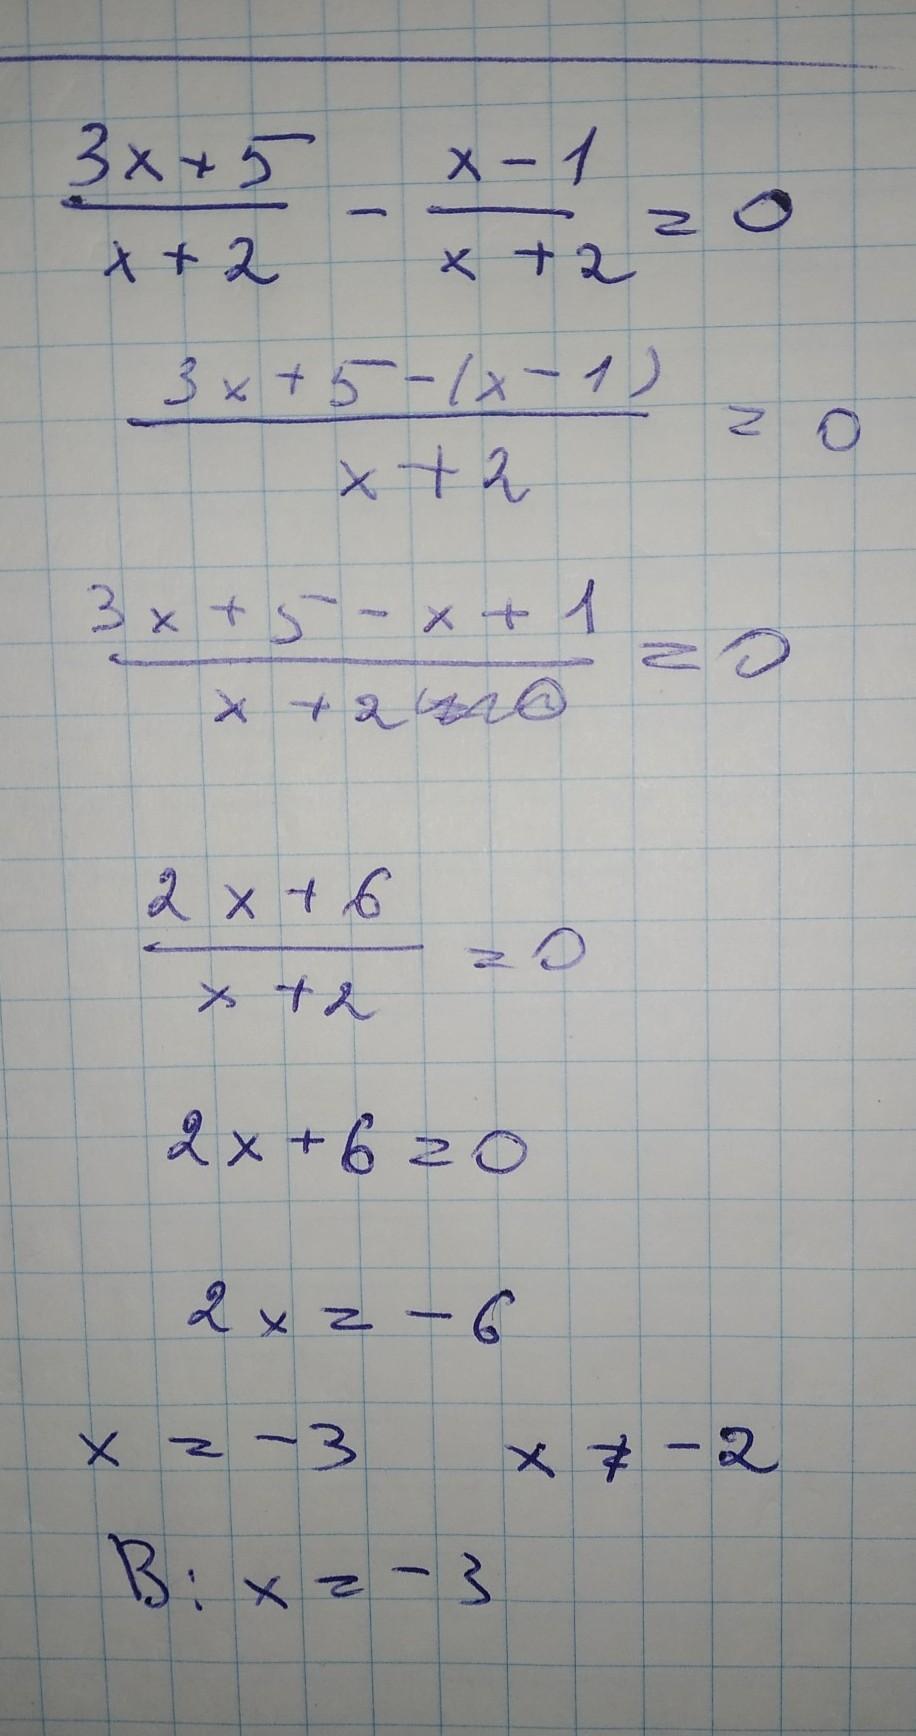 3x+5/x+2 - x-1/x+2 = 0
3x+5-(x-1)/x+2 = 0
3x+5-x+1/x+2 = 0
2x+6/x+2 = 0
2x+6=0
2x=-6
x = -3 x ≠ -2
В: x = -3